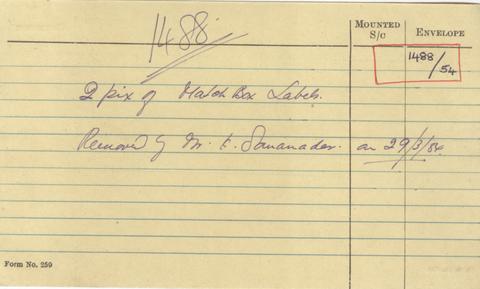 1488
MOUNTED S/C
ENVELOPE
1488/54
2 pix of Match Box Labels.
Removed by Mr. E. on 29/3/54.
Form No. 259